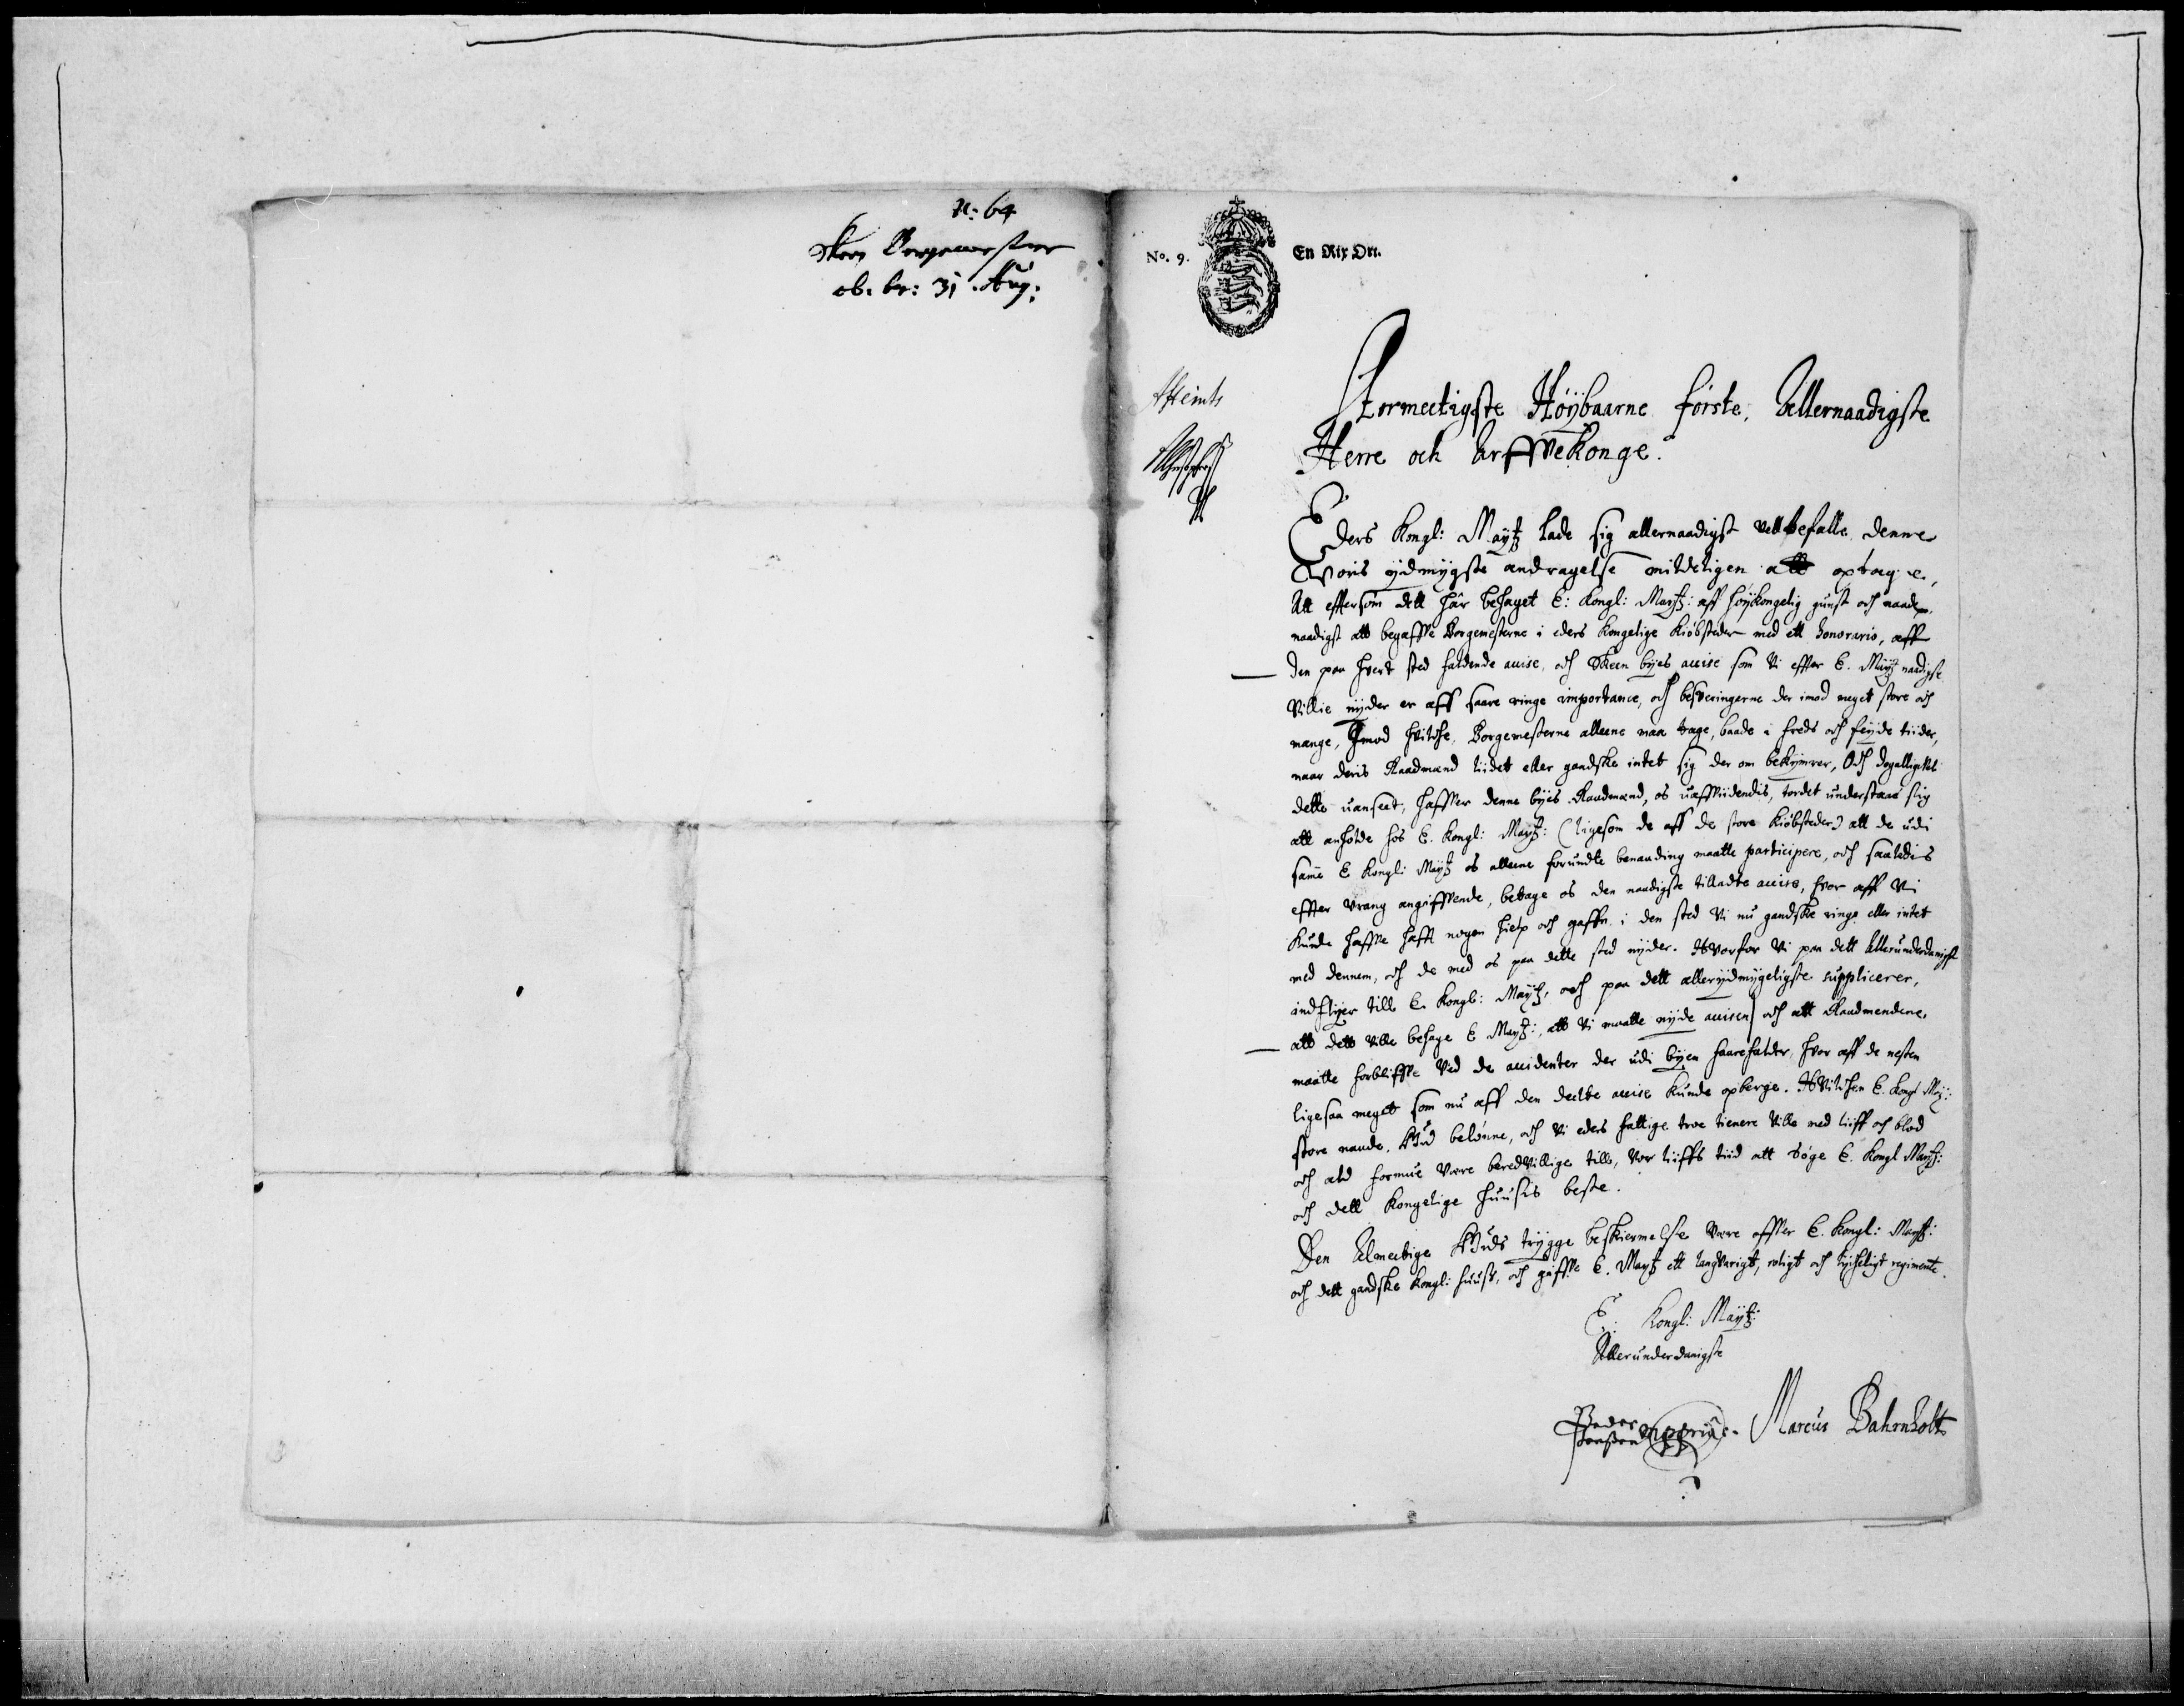 N: 64
Skeen Borgemestere
ob. br: 31 Aug:
No. 9.
En Rix Ort.
Stormectigste Høÿbaarne første, Allernaadigste
Herre och ArffveKonge.
Eders Kongl: Maÿtz lade sig allernaadigst vell befalle denne
Woris ÿdmÿgste andragelse mildeligen att optage,
Att effterSom dett hâr behaget E: Kongl: Maÿtz: aff høÿkongelig gunst och naade,
naadigst att begaffve Borgemesterne i eders Kongelige Kiøbsteder med ett honorario, aff
den paa hvert sted faldende accise, och Skeen bÿes accise som Vi effter E. Maÿtz naadigste
Villie nÿder er aff saare ringe importance, och besveringerne der imod meget store och
mange, Imod hvilche, Borgemesterne alleene maa drage, baade i freds och feÿde tiider,
naar deris Raadmænd liidet eller gandske intet sig der om bekÿmrer, Och dogalligevel
dette uanseet, haffver denne bÿes Raadmænd, os uaffviidendis, tordet understaae sig
att anholde hos E. Kongl: Maÿtz: (ligesom de aff de store Kiøbsteder) att de udi
samme E Kongl: Maÿtz os alleene forundte benaading maatte participere, och saaledis
effter Vrang angiffvende, betage os den naadigste tilladte accise, hvor aff Vi
Kunde haffve hafft nogen hielp och gaffn i den sted Vi nu gandske ringe eller intet
med dennem, och de med os paa dette sted nÿder. Hvorfor Vi paa dett Allerunderdanigste
indflÿer till E. Kongl: Maÿtz, och paa dett allerÿdmÿgeligste supplicerer,
att dett Ville behage E Maÿtz: att Vi maatte nÿde accisen och att Raadmendene,
maatte forbliffve Ved de accidenter der udi bÿen haarefalder, hvor aff de nesten
ligesaa meget som nu aff den deelte accise Kunde opberge. Hvilchen E. Kongl Maÿ:
store naade, Gud belønne, och Vi eders fattige troe tienere Ville med liiff och blod
och ald formue Være beredvillige till, Vor liiffs tiid att søge E. Kongl Maÿtz:
och dett Kongelige huusis beste.
Den Almectige Guds trÿgge beskiermelse Være offver E. Kongl: Maÿtz:
och dett gandske Kongl: huuss, och giffve E. Maÿtz ett langvarigt, roligt och lÿcheligt regimente.
E: Kongl: Maÿtz:
Allerunderdanigste
Peder
mppria.
Marcus Bahrnholt